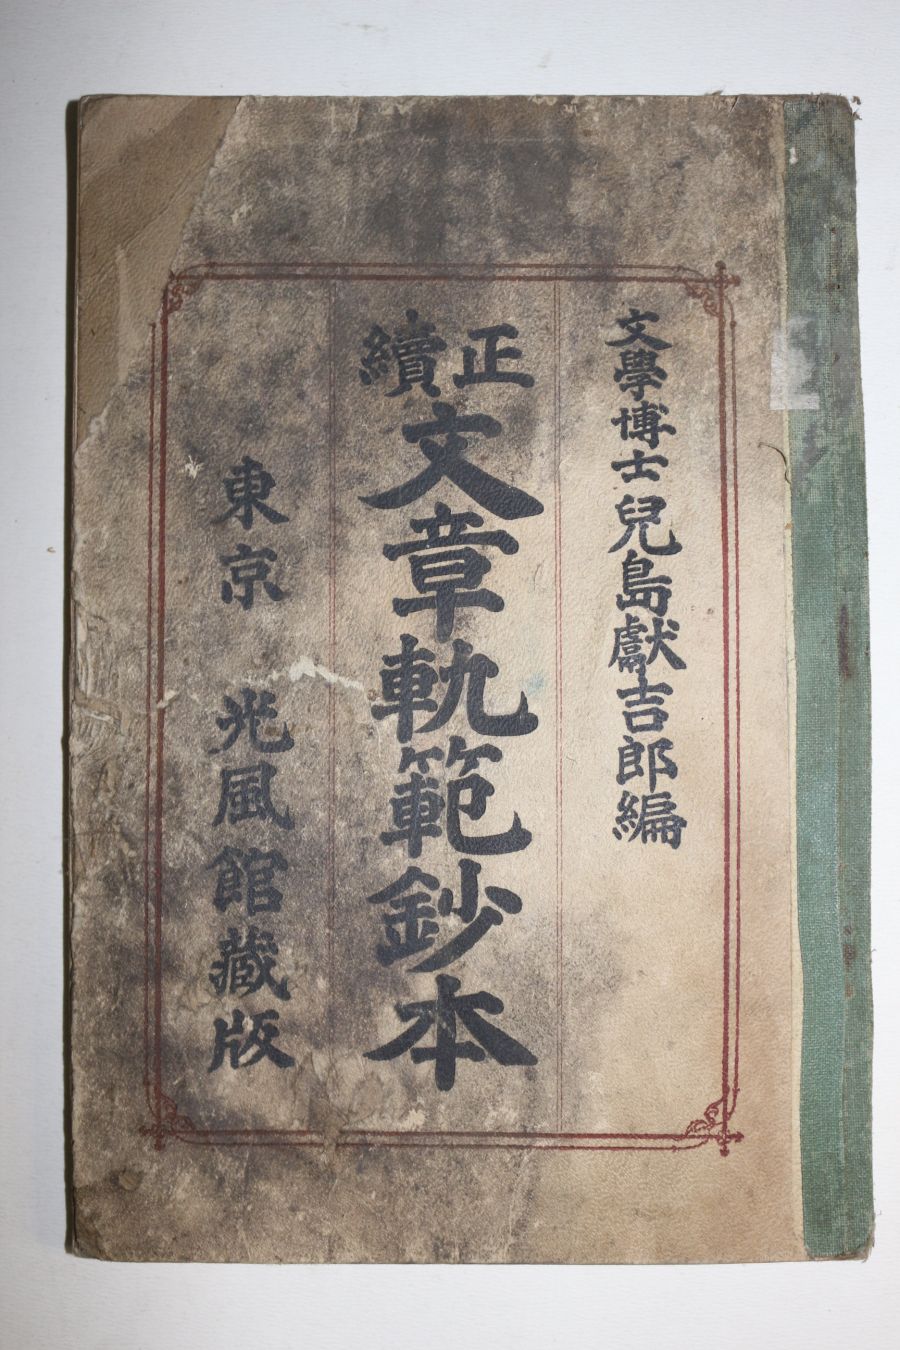 文學博士兒島獻吉郎編
正續
文章軌範鈔本
東京 光風館藏版